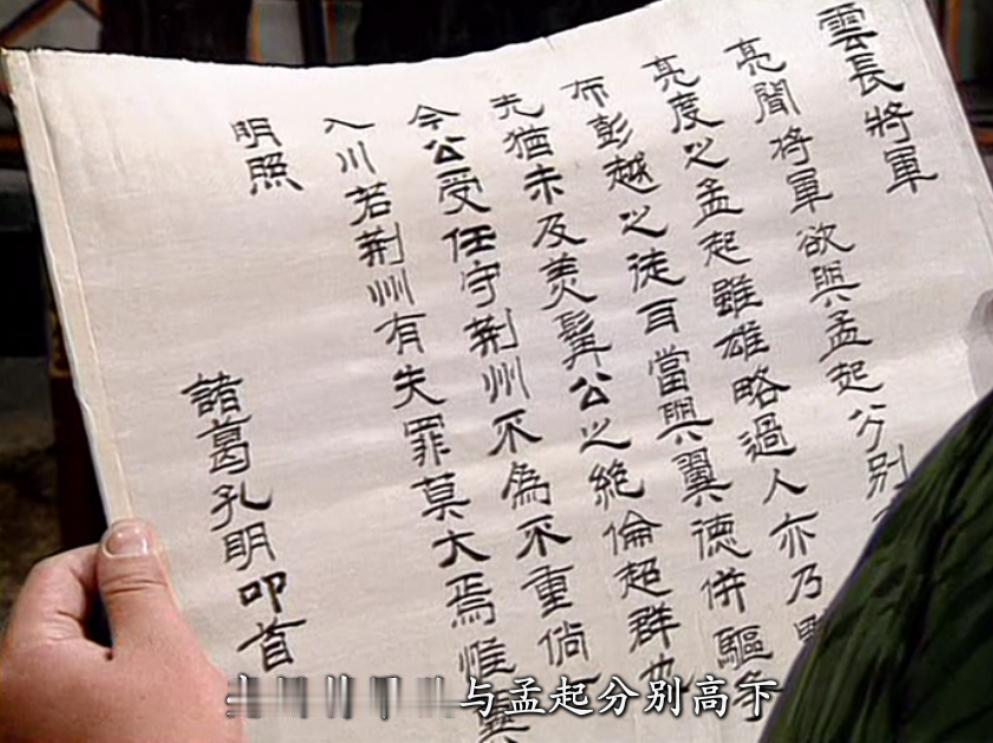 雲長將軍
亮聞將軍欲與孟起分別
亮度之孟起雖雄略過人亦乃
布彭越之徒耳當與翼德併驅爭
先猶未及美髯公之絕倫超群也
今公受任守荊州不為不重倘
入川若荊州有失罪莫大焉惟
明照
諸葛孔明叩首
与孟起分别高下